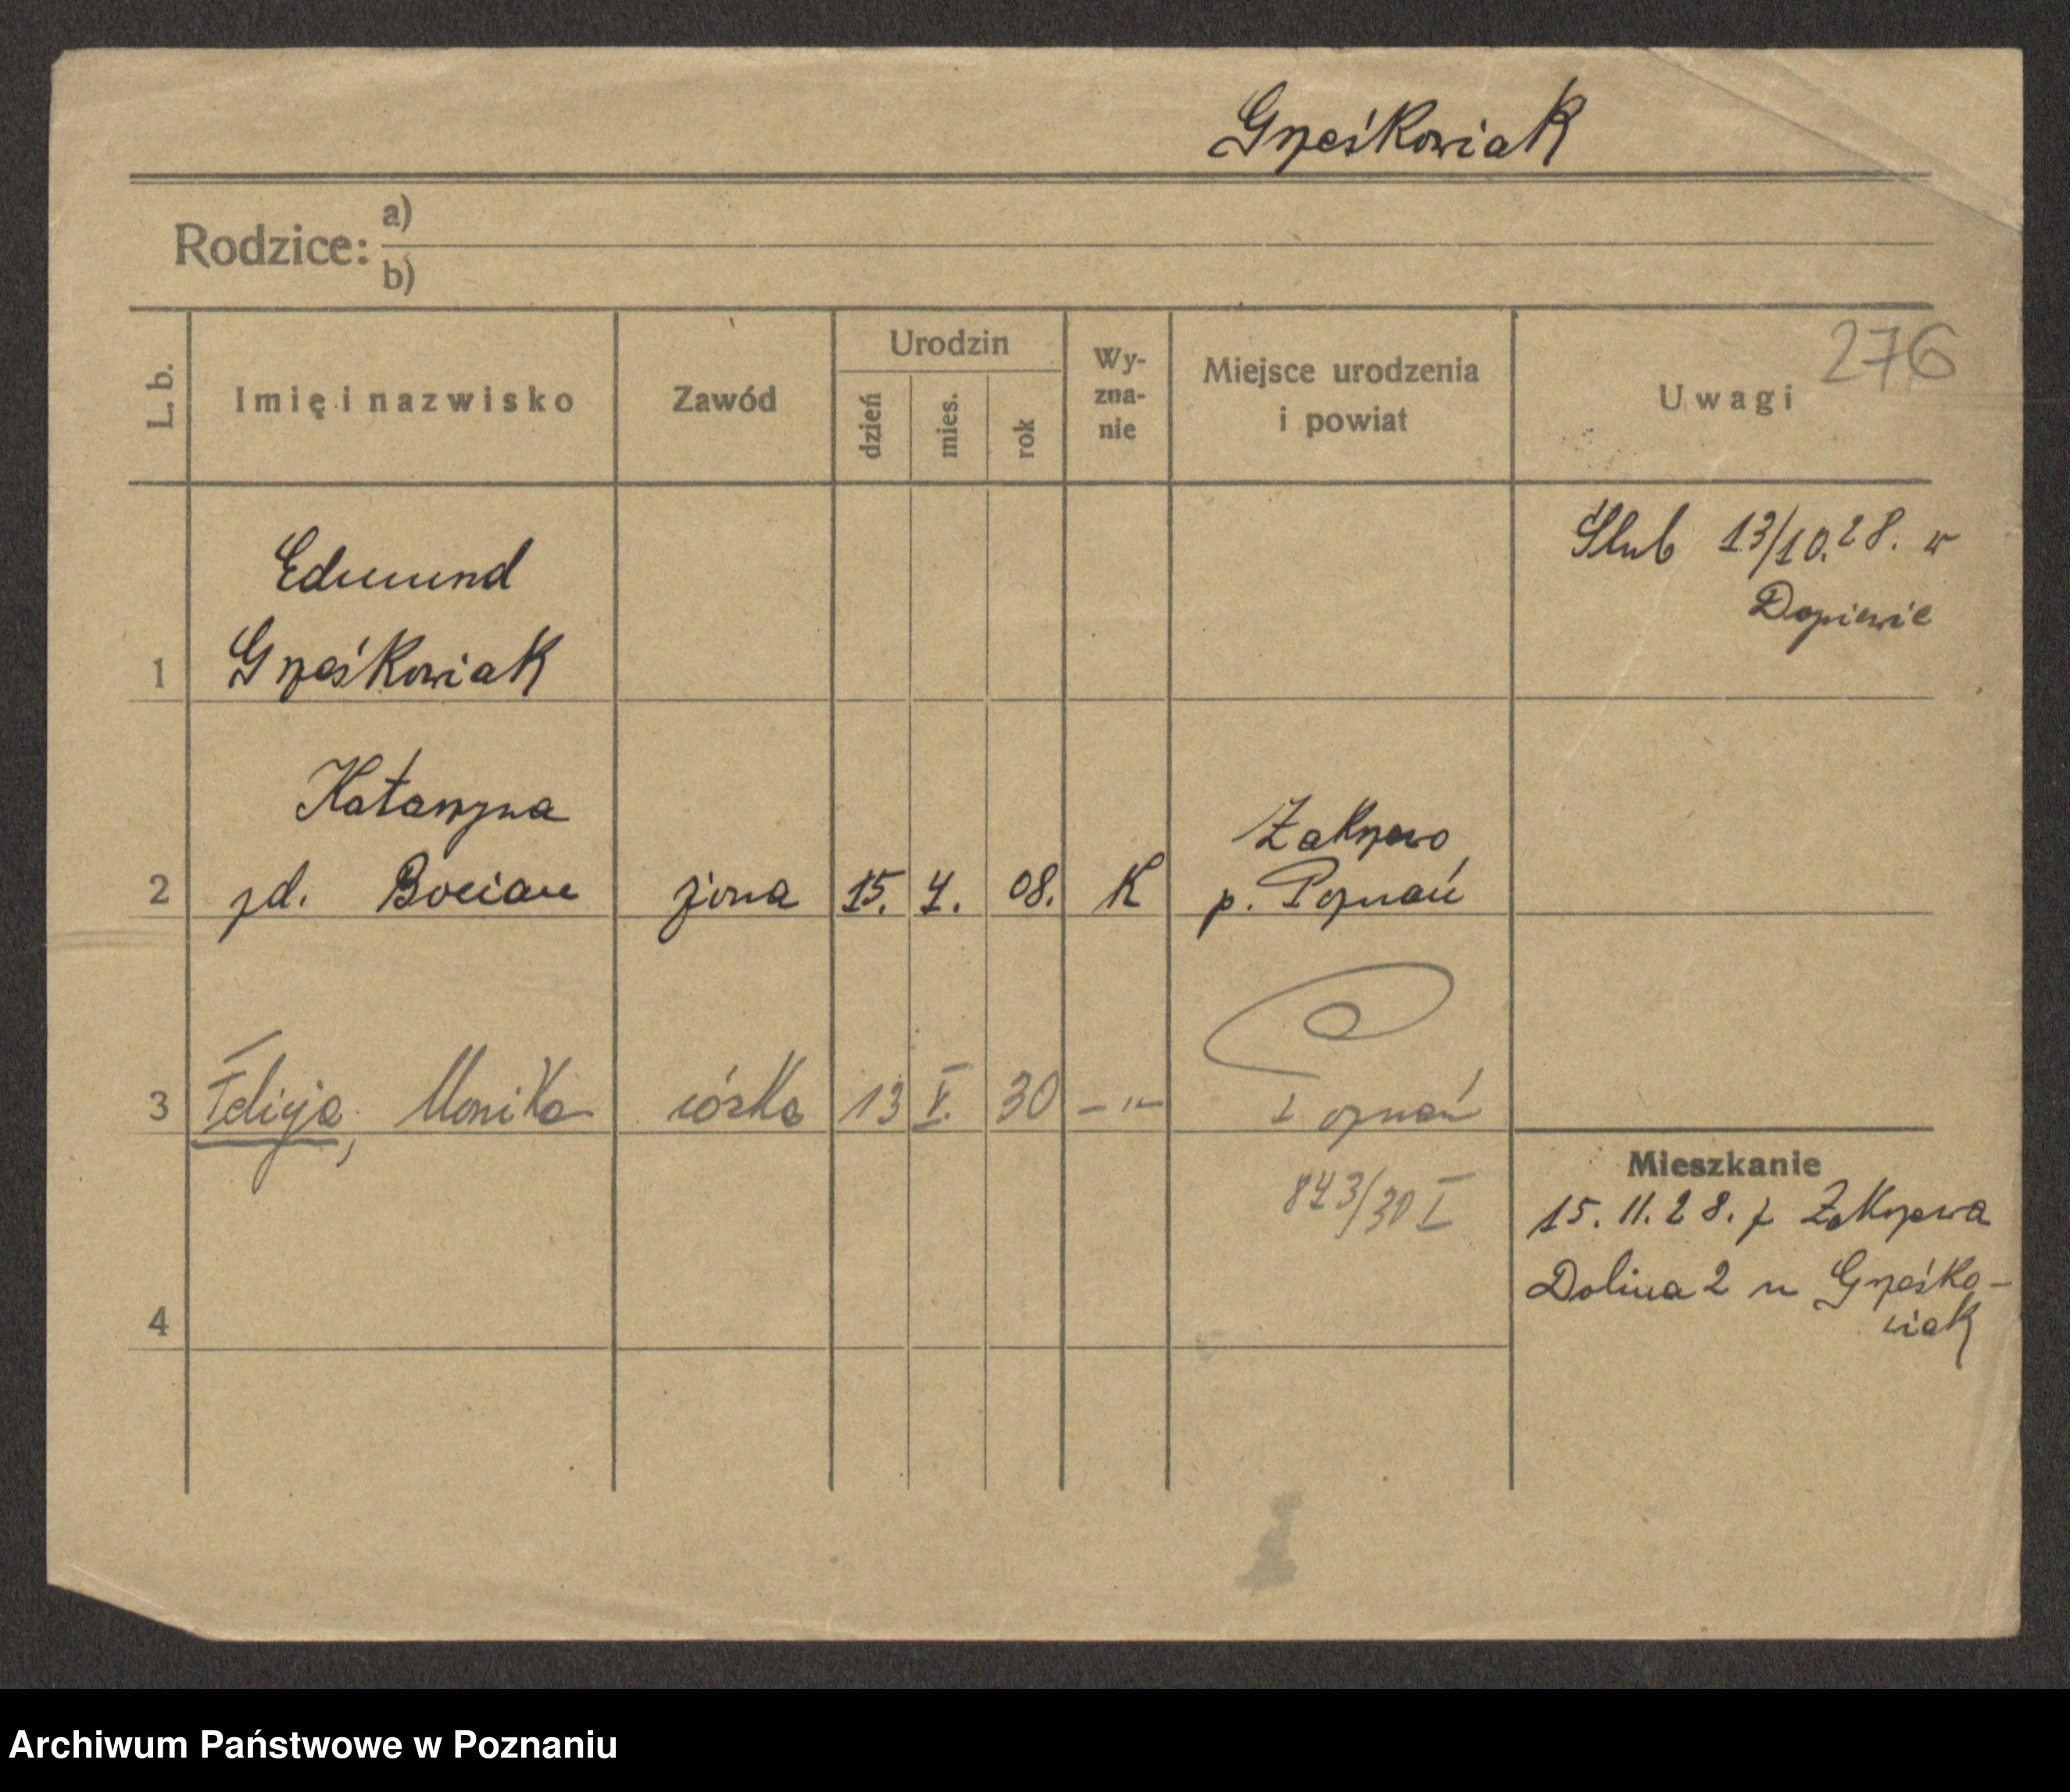 Grześkowiak
Rodzice: a)
b)
L. b.
Imię i nazwisko
Zawód
Urodzin
dzień
mies.
rok
Wy-
zna-
nie
Miejsce urodzenia
i powiat
Uwagi
276
1
Edmund
Grześkowiak
Ślub 13/10.28. w
Dopiewie
2
Katarzyna
zd. Bocian
żona
15.
4.
08.
K
Zakrzewo
p. Poznań
3
Felicja, Monika
córka
13
V.
30
—"—
Poznań
843/30 I
4
Mieszkanie
15.11.28. z Zakrzewa
Dolina 2 u Grześko-
wiak
Archiwum Państwowe w Poznaniu